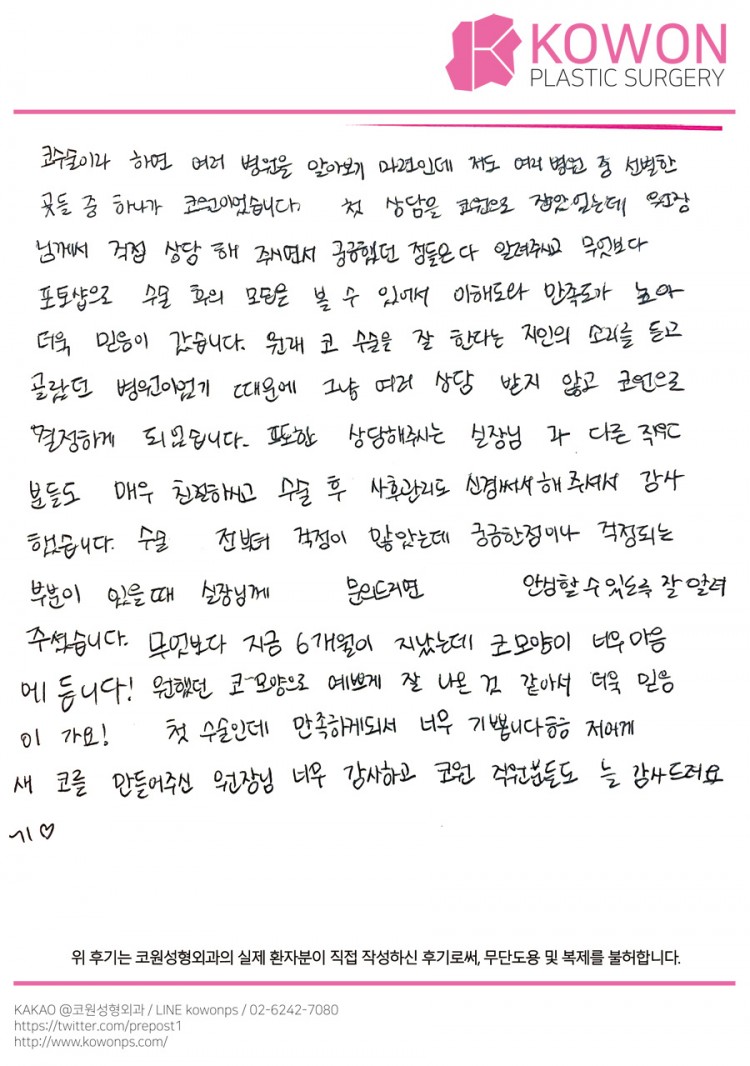 KOWON
PLASTIC SURGERY
코수술이라 하면 여러 병원을 알아보기 마련인데 저도 여러 병원 중 선별한
곳들 중 하나가 코원이었습니다. 첫 상담을 코원으로 잡았었는데 원장
님께서 직접 상담 해 주시면서 궁금했던 점들은 다 알려주시고 무엇보다
포토샵으로 수술 후의 모든을 볼 수 있어서 이해도와 만족도가 높아
더욱 믿음이 갔습니다. 원래 코 수술을 잘 한다는 지인의 소리를 듣고
골랐던 병원이었기 때문에 그냥 여러 상담 받지 않고 코원으로
결정하게 되었습니다. 또한 상담해주시는 실장님 과 다른 직원
분들도 매우 친절하시고 수술 후 사후관리도 신경써서 해 주셔서 감사
했습니다. 수술 전부터 걱정이 많았는데 궁금한점이나 걱정되는
부분이 있을때 실장님께 문의드리면 안심할 수 있도록 잘 알려
주셨습니다. 무엇보다 지금 6개월이 지났는데 코모양이 너무 마음
에 듭니다! 원했던 코모양으로 예쁘게 잘 나온 것 같아서 더욱 믿음
이 가요! 첫 수술인데 만족하게되서 너무 기쁩니다ㅎㅎ 저에게
새 코를 만들어주신 원장님 너무 감사하고 코원 직원분들도 늘 감사드려요
~! ♡
위 후기는 코원성형외과의 실제 환자분이 직접 작성하신 후기로써, 무단도용 및 복제를 불허합니다.
KAKAO @코원성형외과 / LINE kowonps / 02-6242-7080
https://twitter.com/prepost1
http://www.kowonps.com/